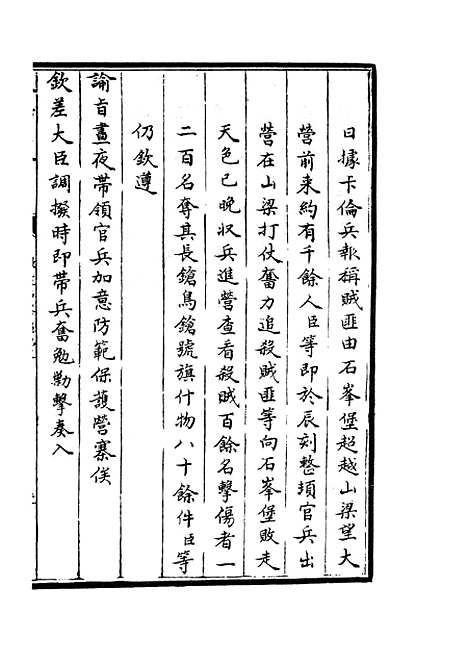 日據卡倫兵報稱賊匪由石峯堡超越山梁望大
營前来約有千餘人臣等即於辰刻整頓官兵出
營在山梁打仗奮力追殺賊匪等向石峯堡敗走
天色已晚收兵進營查看殺賊百餘名擊傷者一
二百名奪其長鎗鳥鎗號旗什物八十餘件臣等
仍欽遵
諭旨晝夜帯領官兵加意防範保護營寨俟
欽差大臣調撥時即帯兵奮勉勦擊奏入